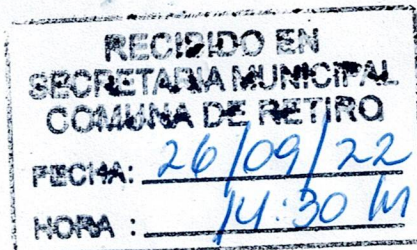 RECIBIDO EN
SECRETARIA MUNICIPAL
COMUNA DE RETIRO
FECHA: 26/09/22
HORA : 14:30 M